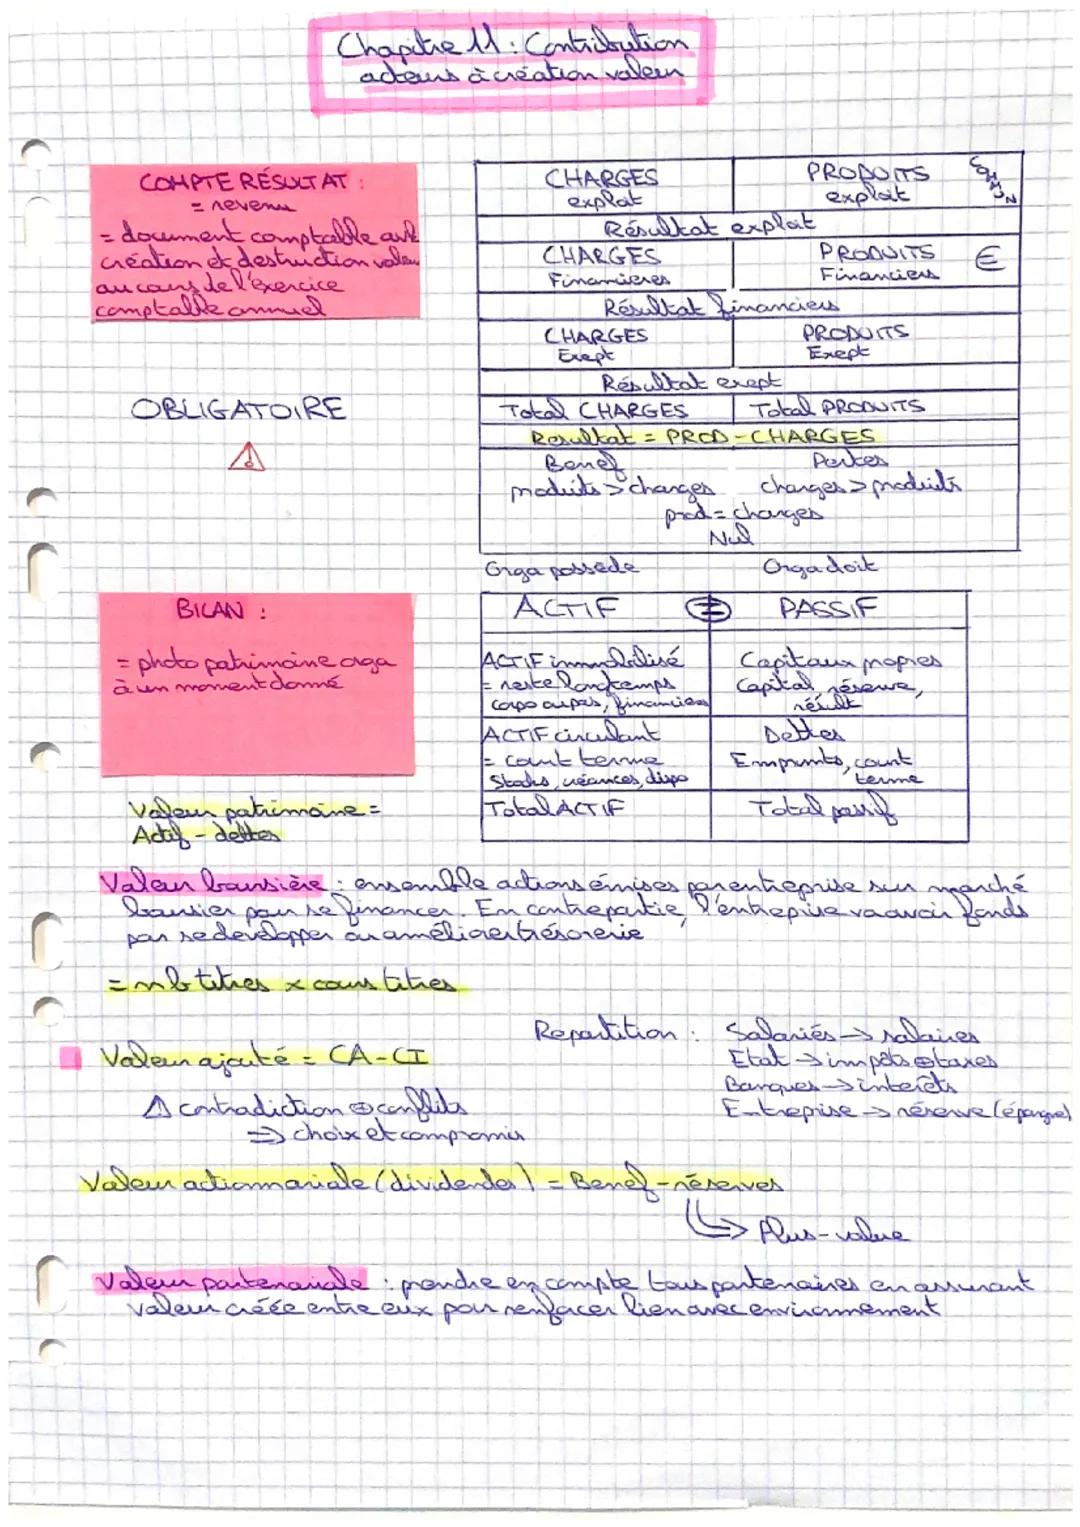 Chapitre 11 : Contribution
acteurs à création valeur
COMPTE RÉSULTAT :
= revenu
= document comptable
création et destruction valeur
au cours de l'exercice
comptable annuel
OBLIGATOIRE
CHARGES exploit PRODUITS exploit
Résultat exploit
CHARGES Financières PRODUITS Financiers €
Résultat financiers
CHARGES Exept PRODUITS Exept
Résultat exept
Total CHARGES Total PRODUITS
Resultat = PROD - CHARGES
Benef Pertes
produits > charges charges > produits
prod = charges
Nul
Orga possède Orga doit
BILAN :
= photo patrimoine orga
à un moment donné
ACTIF = PASSIF
ACTIF immobilisé Capitaux propres
= reste longtemps Capital, réserve,
corpo, financiers résult
ACTIF circulant Dettes
= court terme Emprunts, court
Stocks, créances, dispo terme
Total ACTIF Total passif
Valeur patrimoine =
Actif - dettes
Valeur boursière : ensemble actions émises par entreprise sur marché
boursier pour se financer. En contrepartie, l'entreprise va avoir fonds
pour se developper ou améliorer trésorerie
= nb titres x cours titres
Valeur ajouté = CA - CI
⚠ contradiction ⊕ conflits
⇒ choix et compromis
Repartition : Salariés → salaires
Etat → impôts ⊕ taxes
Banques → interêts
Entreprise → réserve (épargne)
Valeur actionnariale (dividendes) = Benef - réserves
⇒ Plus-value
Valeur partenariale : prendre en compte tous partenaires en assurant
valeur créée entre eux pour renforcer lien avec environnement